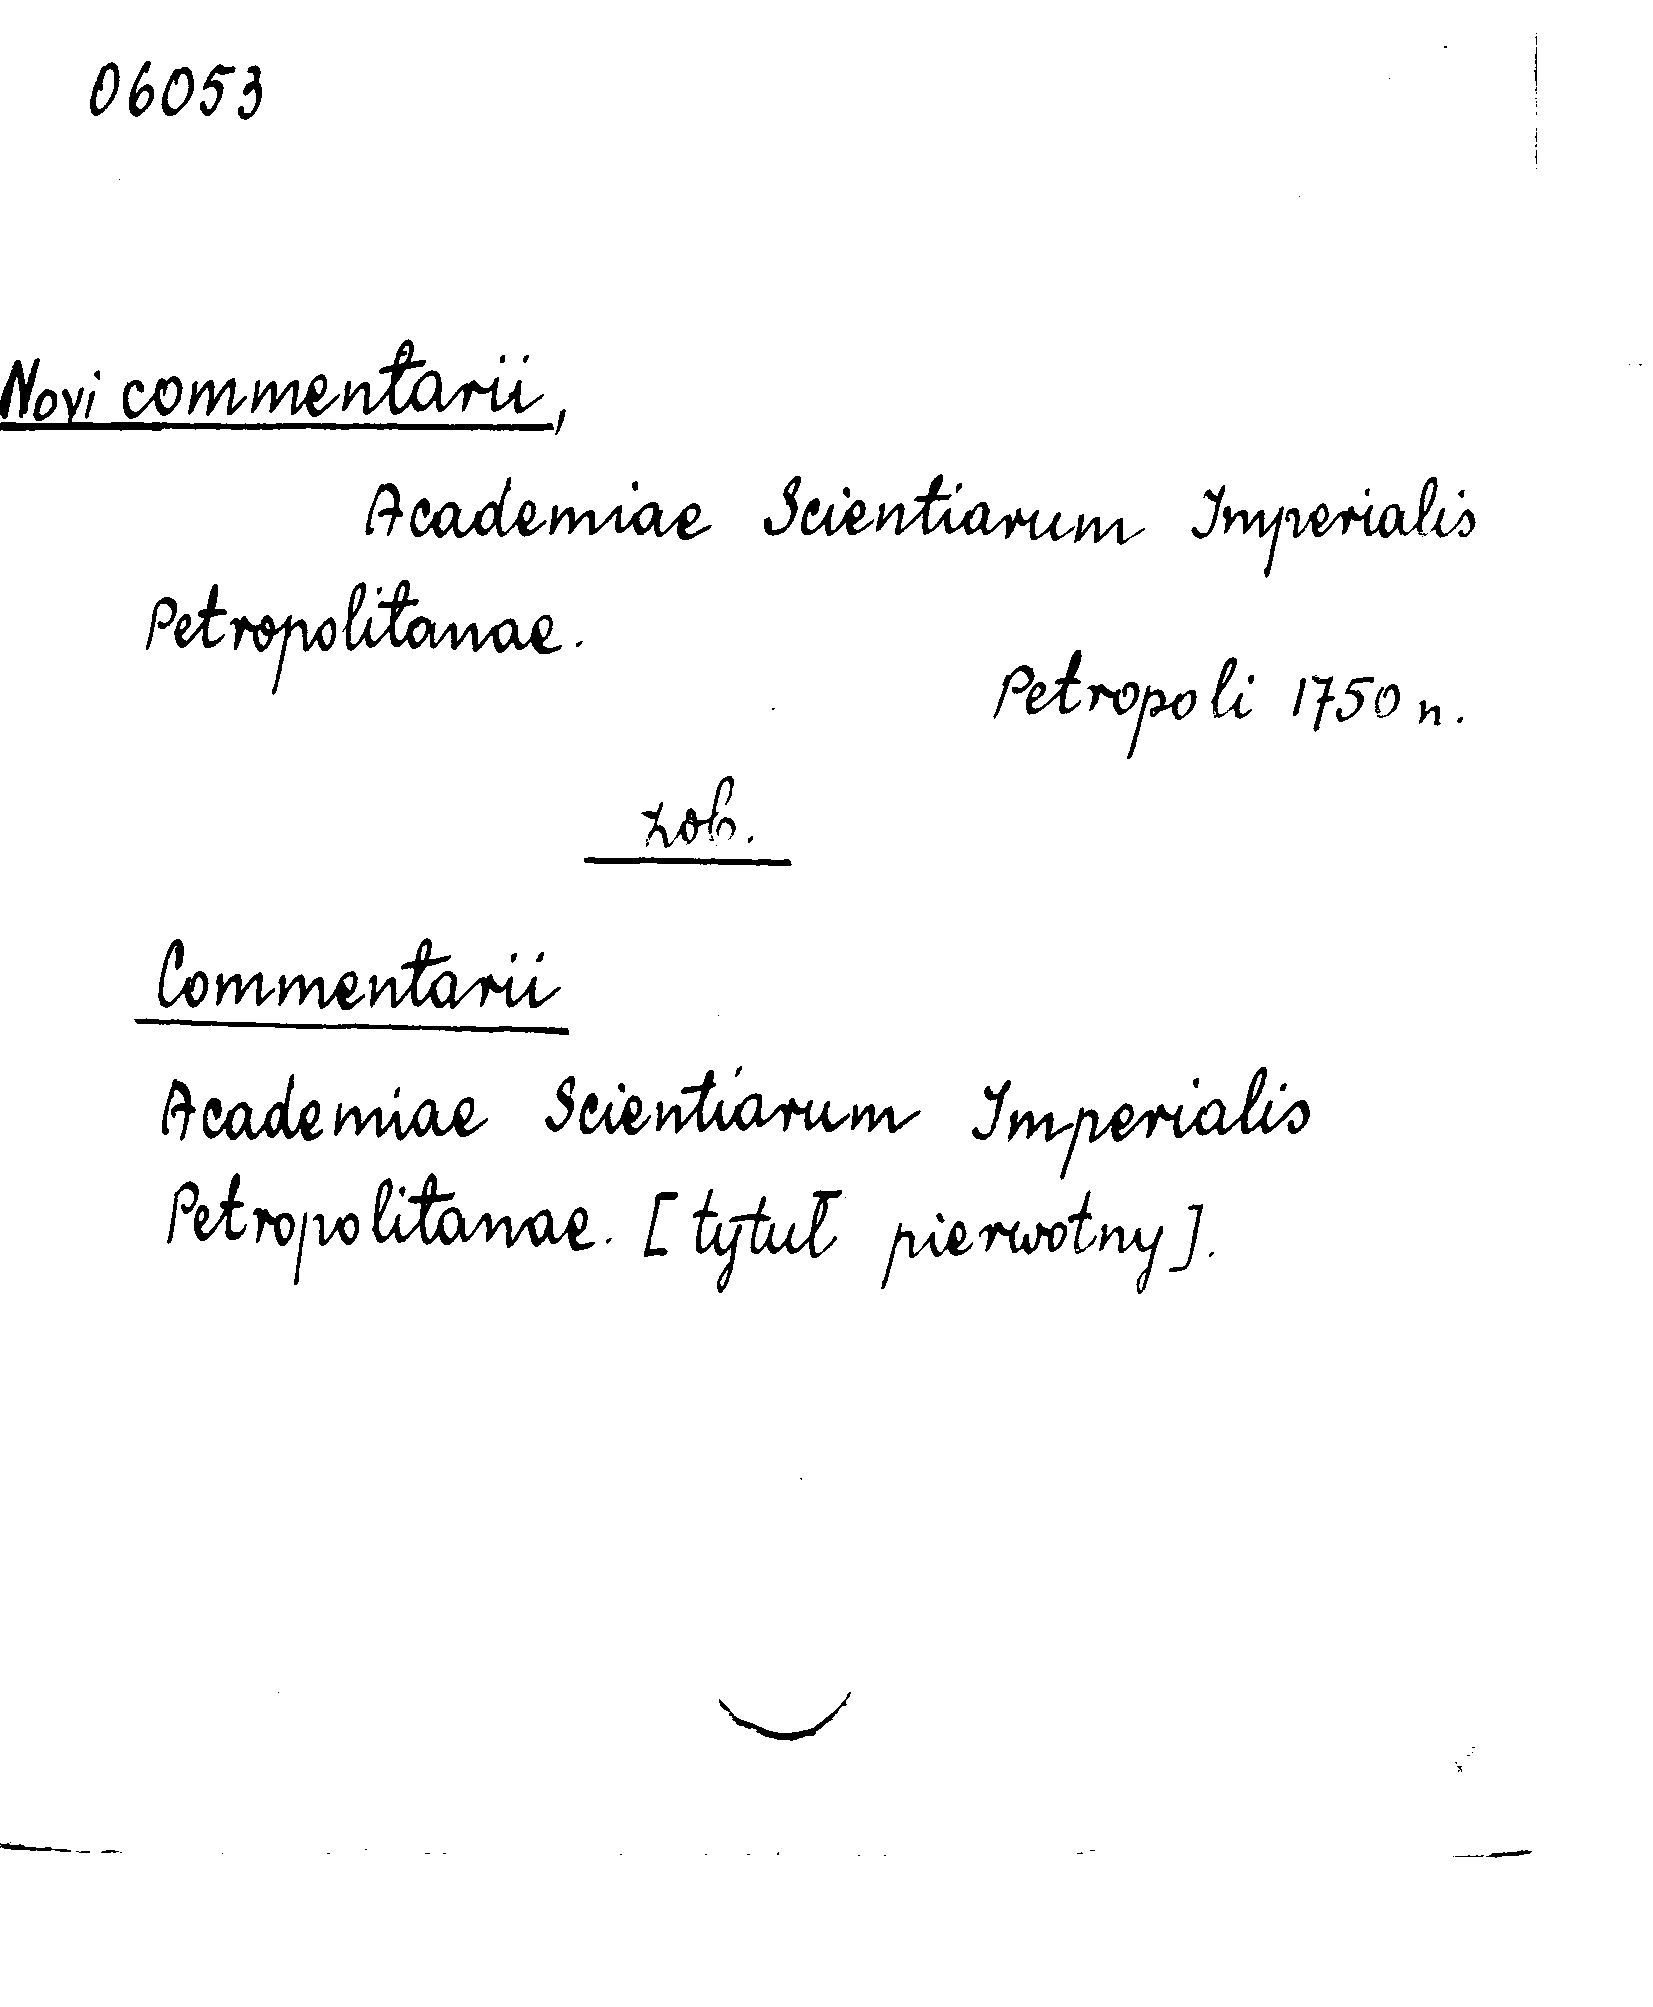 06053
Novi commentarii,
Academiae Scientiarum Imperialis
Petropolitanae.
Petropoli 1750 n.
zob.
Commentarii
Academiae Scientiarum Imperialis
Petropolitanae. [tytuł pierwotny].